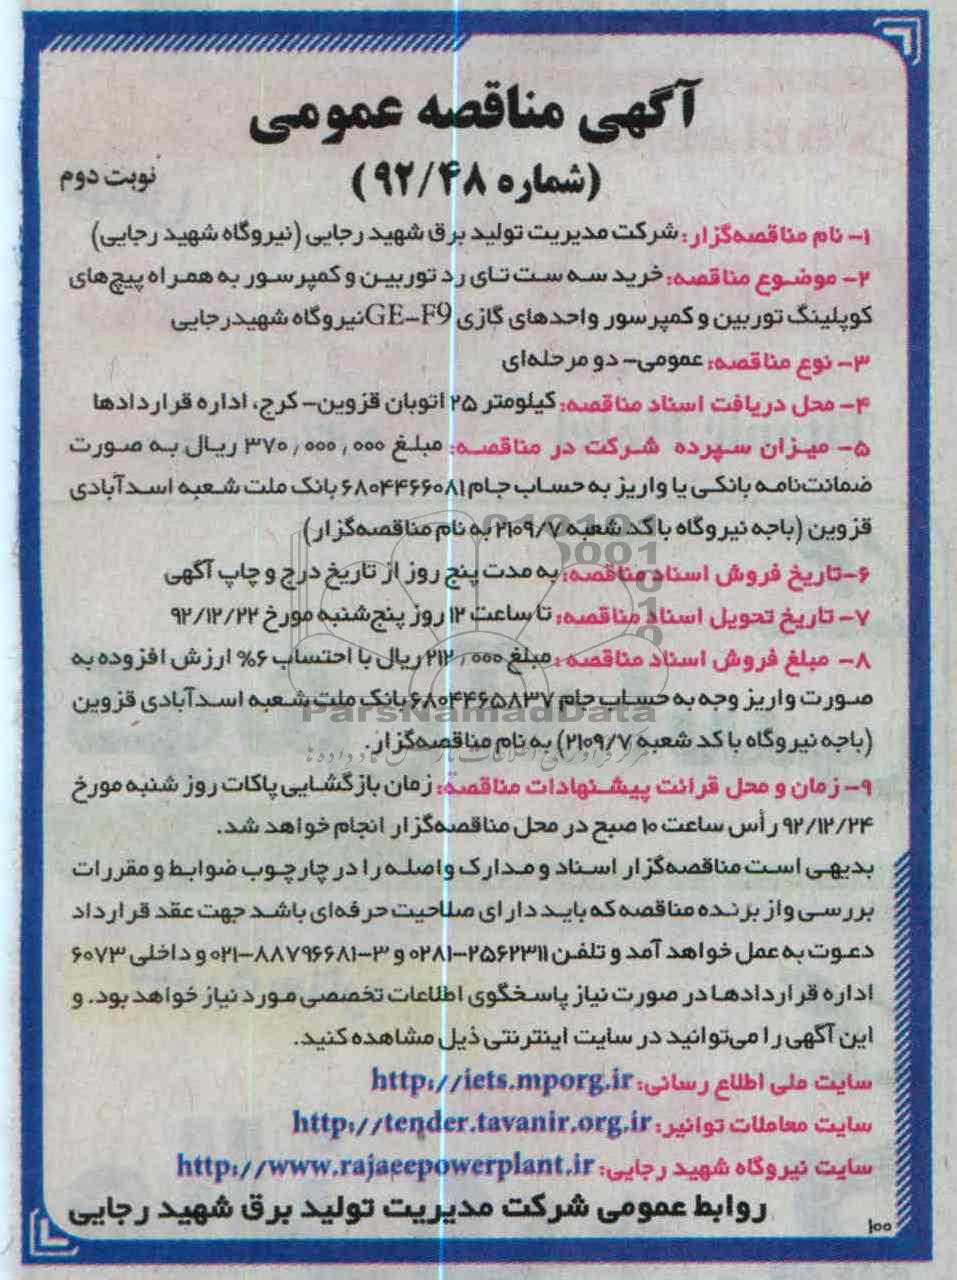 آگهی مناقصه عمومی
(شماره ۹۲/۴۸)
نوبت دوم
۱- نام مناقصه‌گزار: شرکت مدیریت تولید برق شهید رجایی (نیروگاه شهید رجایی)
۲- موضوع مناقصه: خرید سه ست تای رد توربین و کمپرسور به همراه پیچ‌های
کوپلینگ توربین و کمپرسور واحدهای گازی GE-F9 نیروگاه شهیدرجایی
۳- نوع مناقصه: عمومی- دو مرحله‌ای
۴- محل دریافت اسناد مناقصه: کیلومتر ۲۵ اتوبان قزوین- کرج، اداره قراردادها
۵- میزان سپرده شرکت در مناقصه: مبلغ ۳۷۰٫۰۰۰٫۰۰۰ ریال به صورت
ضمانت‌نامه بانکی یا واریز به حساب جام ۶۸۰۴۴۶۶۰۸۱ بانک ملت شعبه اسدآبادی
قزوین (باجه نیروگاه با کد شعبه ۲۱۰۹/۷ به نام مناقصه‌گزار)
۶-تاریخ فروش اسناد مناقصه: به مدت پنج روز از تاریخ درج و چاپ آگهی
۷- تاریخ تحویل اسناد مناقصه: تا ساعت ۱۲ روز پنج‌شنبه مورخ ۹۲/۱۲/۲۲
۸- مبلغ فروش اسناد مناقصه: مبلغ ۲۱۲٫۰۰۰ ریال با احتساب ۶% ارزش افزوده به
صورت واریز وجه به حساب جام ۶۸۰۴۴۶۵۸۳۷ بانک ملت شعبه اسدآبادی قزوین
(باجه نیروگاه با کد شعبه ۲۱۰۹/۷) به نام مناقصه‌گزار.
۹- زمان و محل قرائت پیشنهادات مناقصه: زمان بازگشایی پاکات روز شنبه مورخ
۹۲/۱۲/۲۴ رأس ساعت ۱۰ صبح در محل مناقصه‌گزار انجام خواهد شد.
بدیهی است مناقصه‌گزار اسناد و مدارک واصله را در چارچوب ضوابط و مقررات
بررسی و از برنده مناقصه که باید دارای صلاحیت حرفه‌ای باشد جهت عقد قرارداد
دعوت به عمل خواهد آمد و تلفن ۲۵۶۲۳۱۱-۰۲۸۱ و ۳-۸۸۷۹۶۶۸۱-۰۲۱ و داخلی ۶۰۷۳
اداره قراردادها در صورت نیاز پاسخگوی اطلاعات تخصصی مورد نیاز خواهد بود. و
این آگهی را می‌توانید در سایت اینترنتی ذیل مشاهده کنید.
سایت ملی اطلاع رسانی: http://iets.mporg.ir
سایت معاملات توانیر: http://tender.tavanir.org.ir
سایت نیروگاه شهید رجایی: http://www.rajaeepowerplant.ir
روابط عمومی شرکت مدیریت تولید برق شهید رجایی
۱۰۰
ParsNamadData